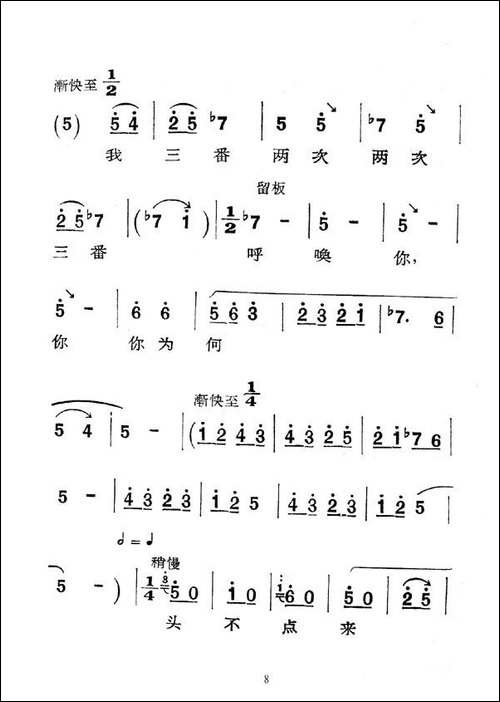 漸快至 1/2
(5) 5 4 | 2 5 ♭7 | 5 5 ↘ | ♭7 5 ↘ |
我 三 番 两 次 两 次
留板
2 5 ♭7 | (♭7 i) | 1/2 ♭7 - | 5 - | 5 ↘ - |
三 番 呼 唤 你,
5 ↘ - | 6 6 | 5 6 3 | 2 3 2 1 | ♭7. 6 |
你 你 为 何
漸快至 1/4
5 4 | 5 - | (1 2 4 3 | 4 3 2 5 | 2 1 ♭7 6 |
5 - | 4 3 2 3 | 1 2 5 | 4 3 2 3 | 1 2 5 |
稍慢
5 - ) | 1/4 5 0 | 1 0 | 6 0 | 5 0 | 2 5 |
头 不 点 来
8